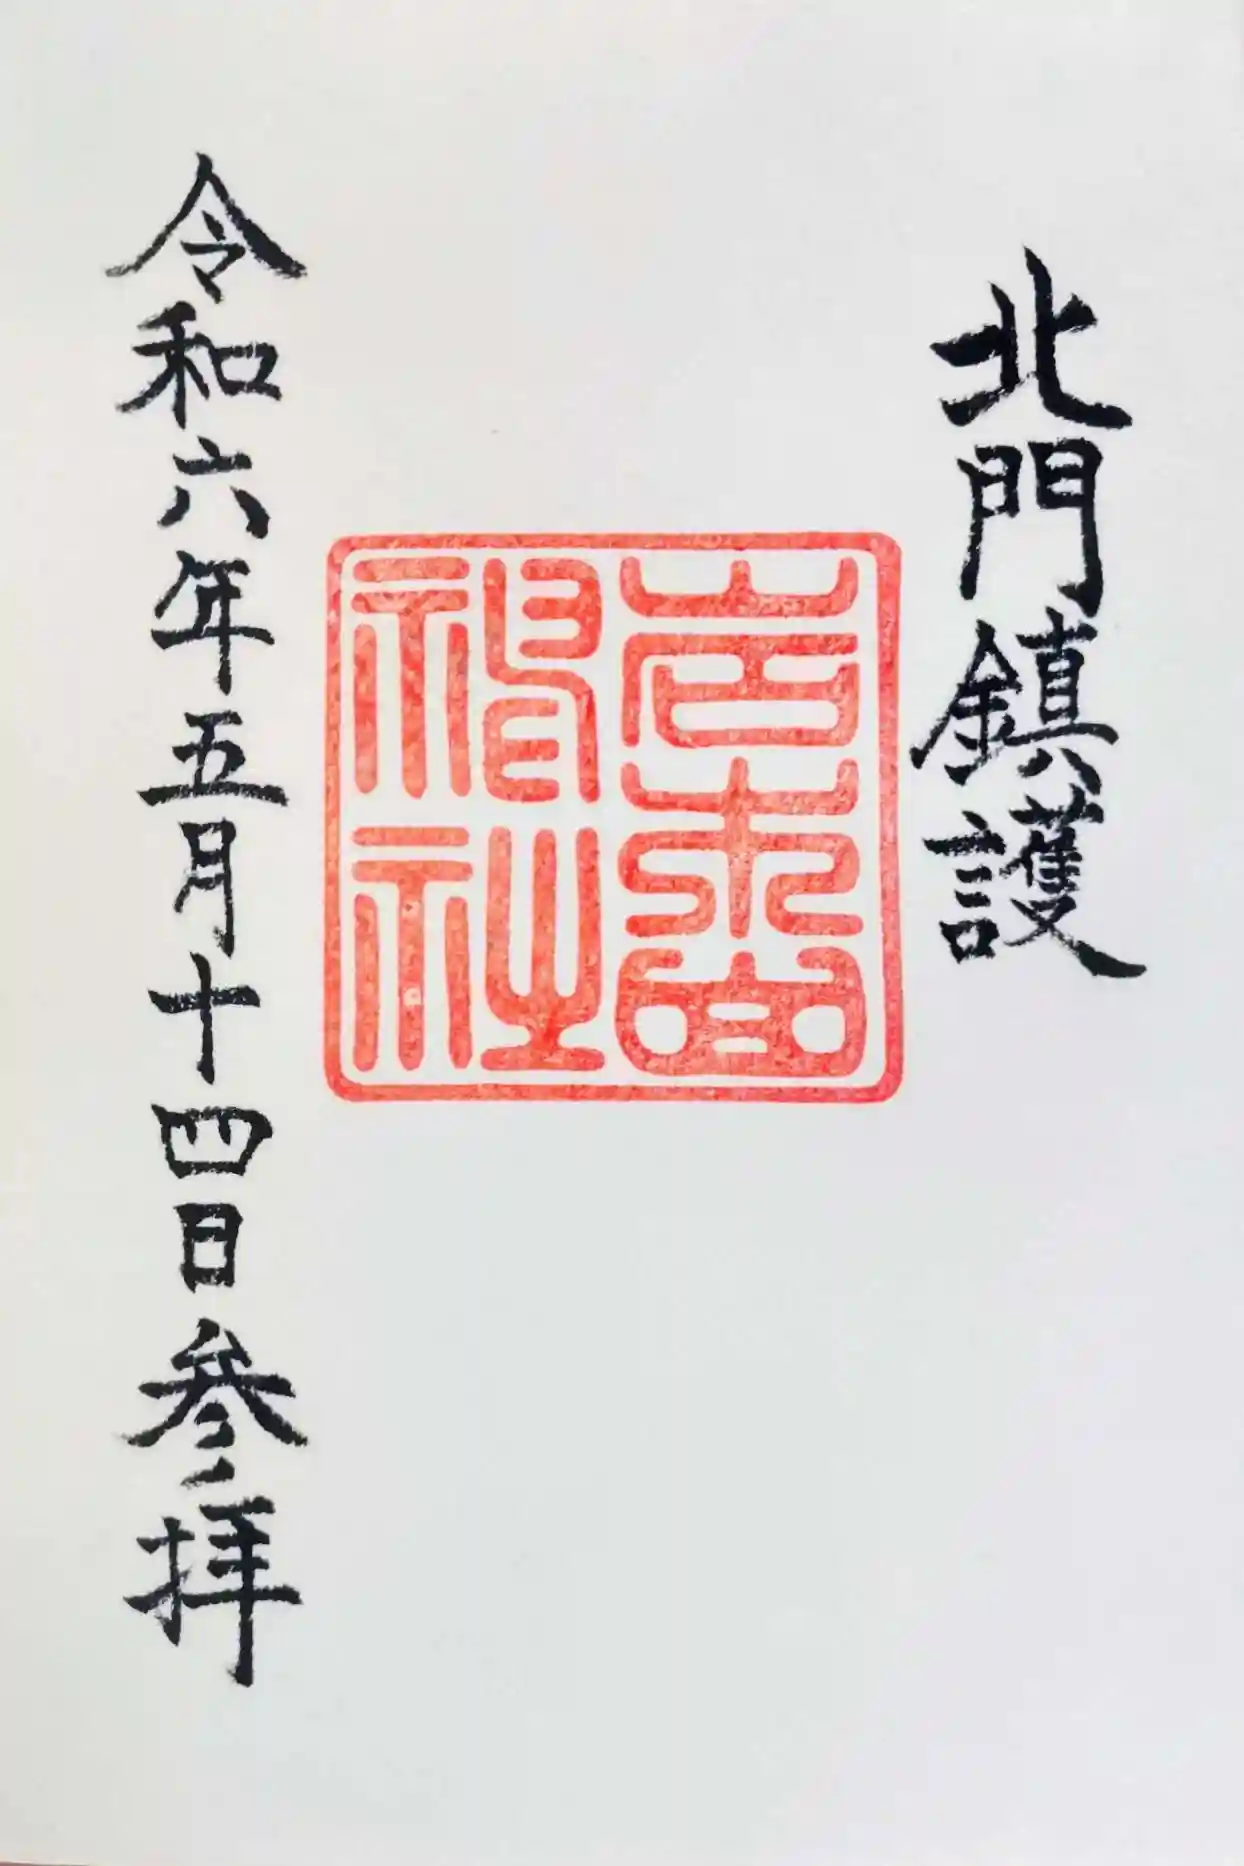 北門鎮護
岩木山
神社
令和六年五月十四日参拝